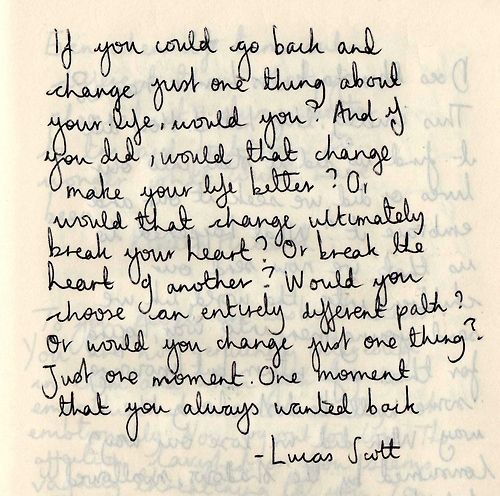 If you could go back and
change just one thing about
your life, would you? And if
you did, would that change
make your life better? Or
would that change ultimately
break your heart? Or break the
heart of another? Would you
choose an entirely different path?
Or would you change just one thing?
Just one moment. One moment
that you always wanted back
- Lucas Scott